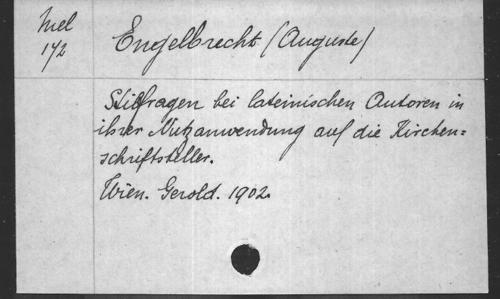 Mel
172
Engelbrecht (Auguste)
Stilfragen bei lateinischen Autoren in
ihrer Nutzanwendung auf die Kirchen=
schriftsteller.
Wien. Gerold. 1902.